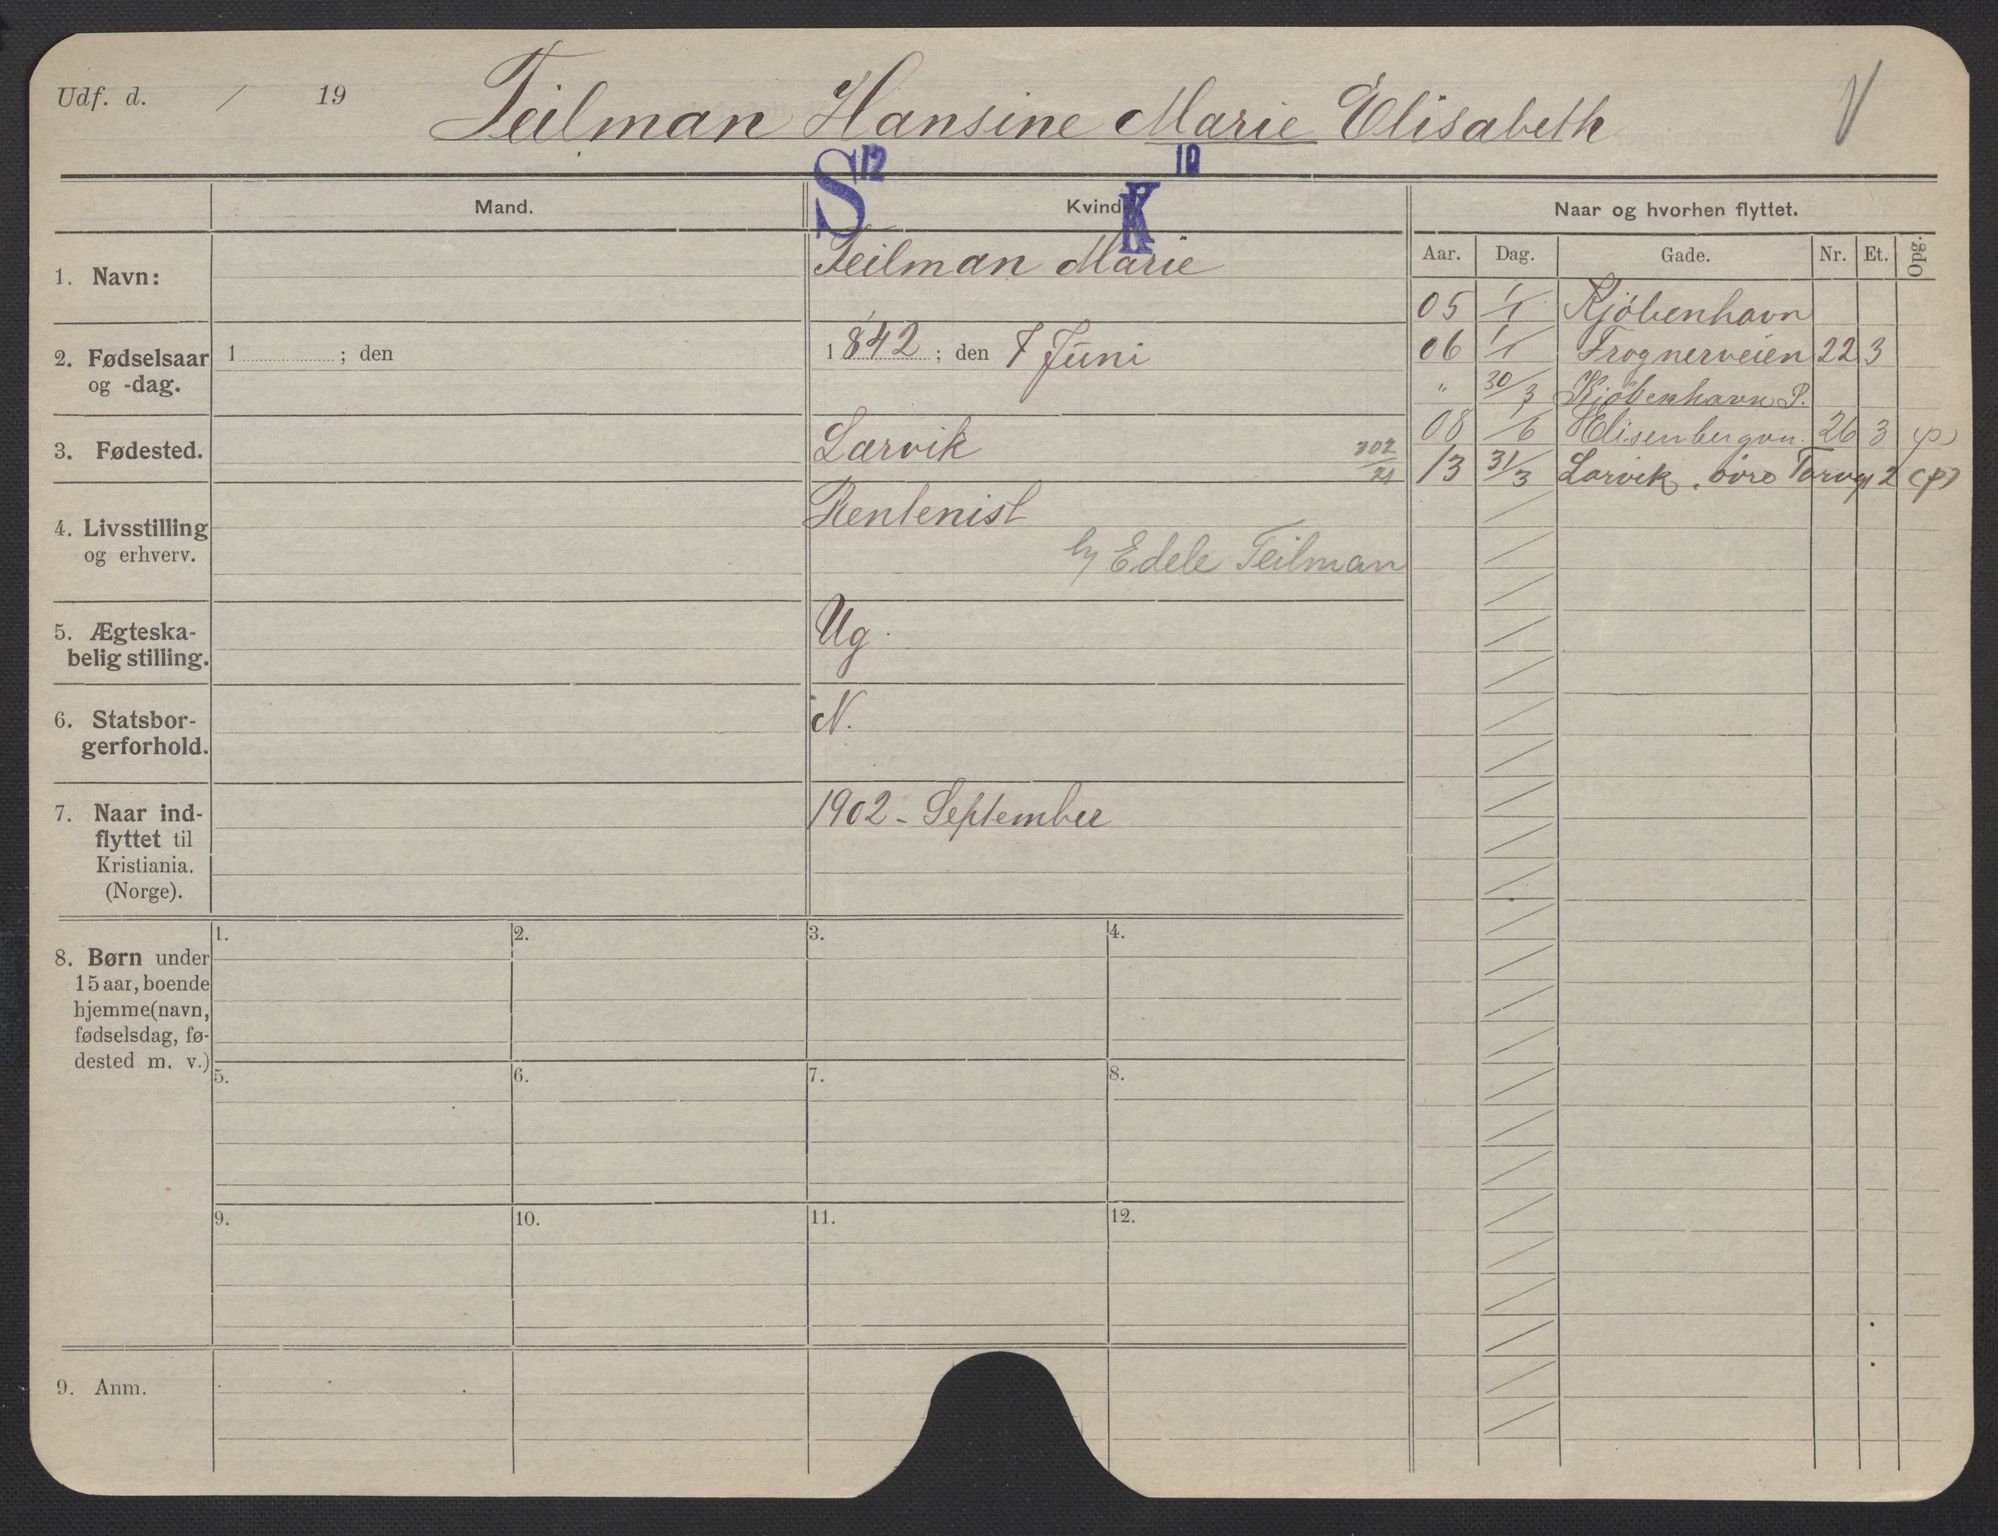 Udf. d. / 19
Teilman Hansine Marie Elisabeth
V
S 12 K 10
Mand. Kvinde Naar og hvorhen flyttet.
Aar. Dag. Gade. Nr. Et. Opg.
1. Navn:
Teilman Marie
2. Fødselsaar og -dag.
1 ; den
1842 ; den 7 Juni
3. Fødested.
Larvik
302/21
4. Livsstilling og erhverv.
Rentenist
h/ Edele Teilman
5. Ægteska-
belig stilling.
Ug.
6. Statsbor-
gerforhold.
N.
7. Naar ind-
flyttet til
Kristiania.
(Norge).
1902 - September
05 1/1 Kjøbenhavn
06 1/1 Frognerveien 22 3
" 30/3 Kjøbenhavn P.
08 1/6 Elisenbergvn. 26 3 (p)
13 31/3 Larvik, övre Torvg 2 (p)
8. Børn under
15 aar, boende
hjemme (navn,
fødselsdag, fø-
dested m. v.)
1. 2. 3. 4.
5. 6. 7. 8.
9. 10. 11. 12.
9. Anm.